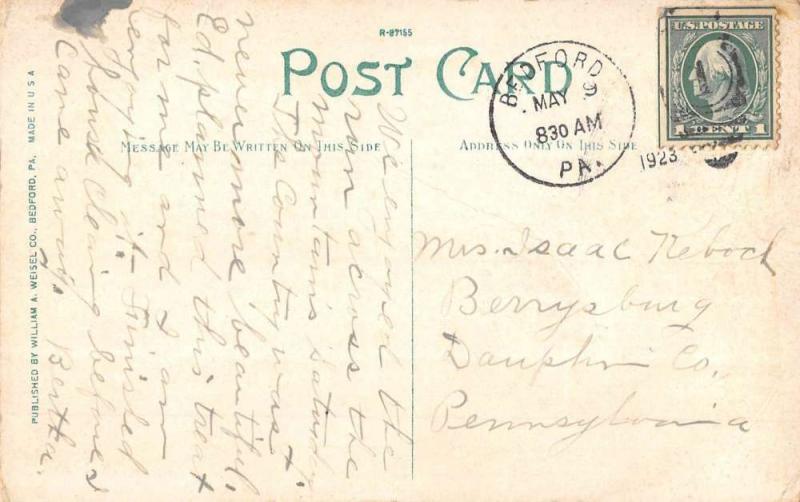 R-87155
POST CARD
MESSAGE MAY BE WRITTEN ON THIS SIDE
ADDRESS ONLY ON THIS SIDE
PUBLISHED BY WILLIAM A. WEISEL CO., BEDFORD, PA. MADE IN U S A
BEDFORD
MAY 9
830 AM
PA.
1923
U.S. POSTAGE
1 CENT 1
We enjoyed the
run across the
mountains Saturday
The Country was
never more beautiful,
Ed. planned this treat
for me and I am
enjoying it - Finished
house cleaning before I
Came away. Bertha.
Mrs. Isaac
Berrysburg
Dauphin Co,
Pennsylvania